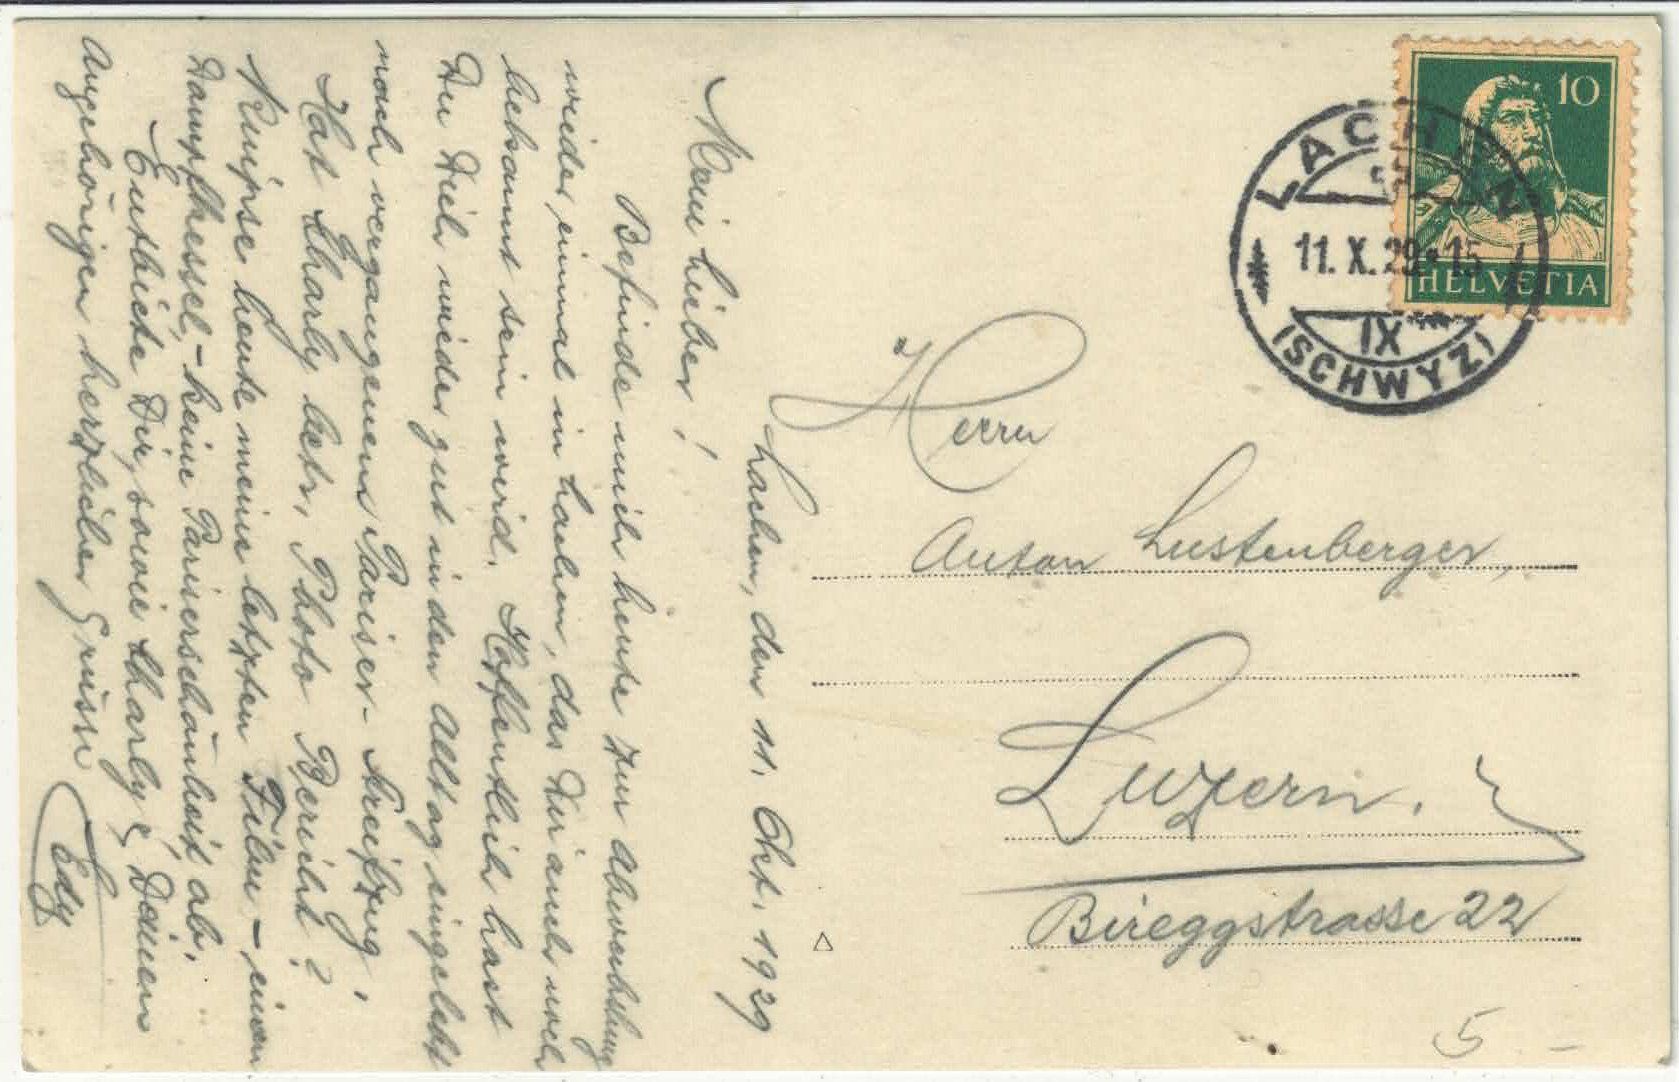 Lachen, den 11. Okt. 1929
Mein Lieber!
Befinde mich heute zur Abwechslung
wieder einmal in Lachen, das Dir auch noch
bekannt sein wird. Hoffentlich hast
Du Dich wieder gut in den Alltag eingelebt
nach vergangenem Pariser-Streifzug.
Hat Charly betr. Photo Bericht?
Knipse heute meine letzten Film – einen
Dampfkessel, – keine Pariserschönheit ab.
Entbiete Dir, sowie Charly & Deinen
Angehörigen herzliche Grüsse
Edy
10
HELVETIA
LACHEN
11. X. 29. 15
IX
(SCHWYZ)
Herrn
Anton Lustenberger,
Luzern.
Bireggstrasse 22
5 –